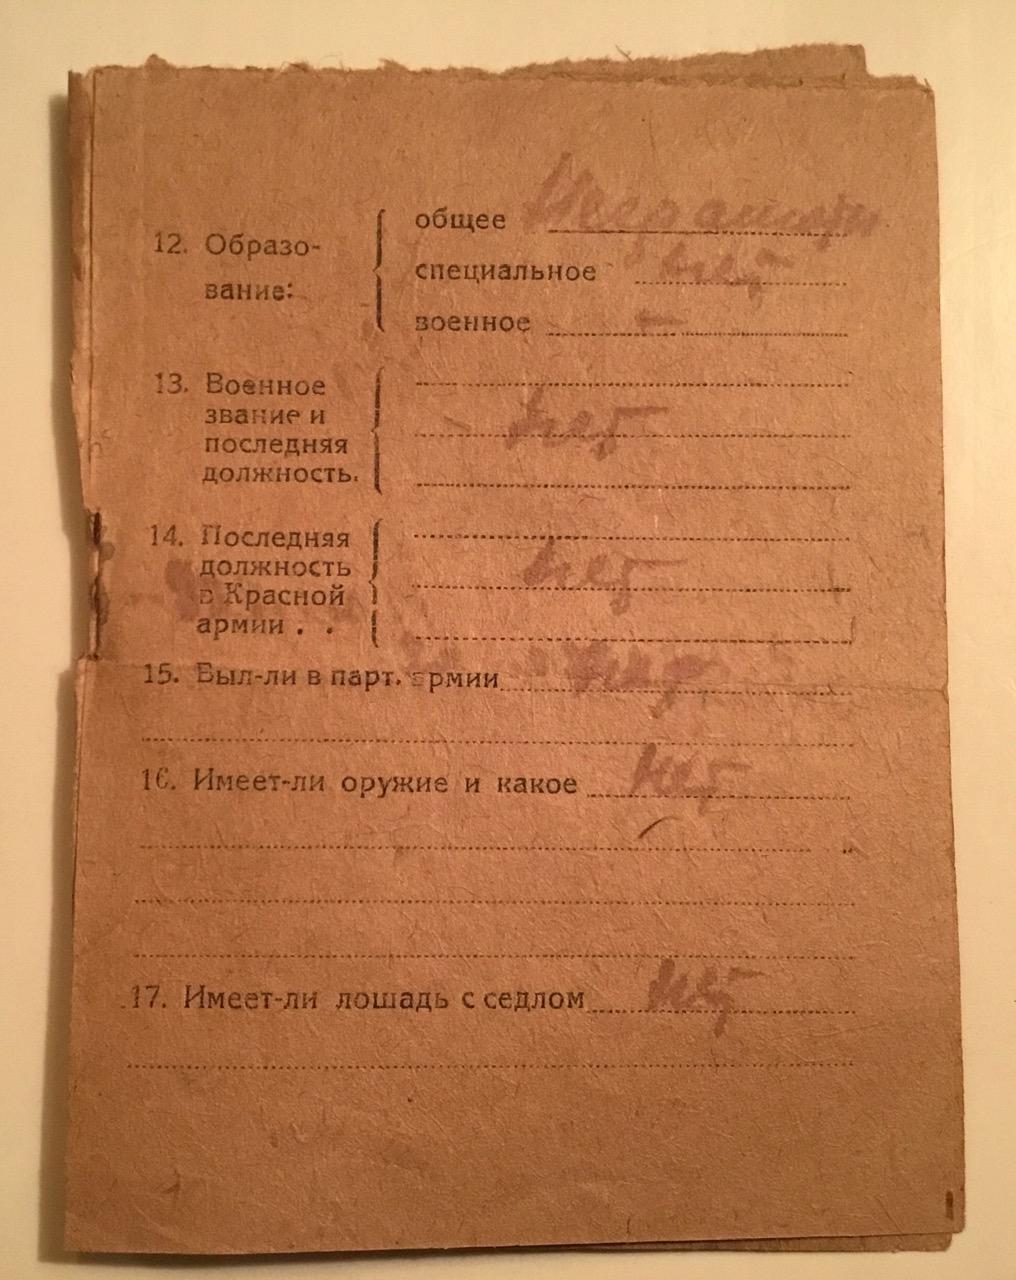 12. Образо-
вание:
общее
специальное нет
военное —
13. Военное
звание и
последняя
должность.
нет
14. Последняя
должность
в Красной
армии . .
нет
15. Был-ли в парт. армии нет
16. Имеет-ли оружие и какое нет
17. Имеет-ли лошадь с седлом нет